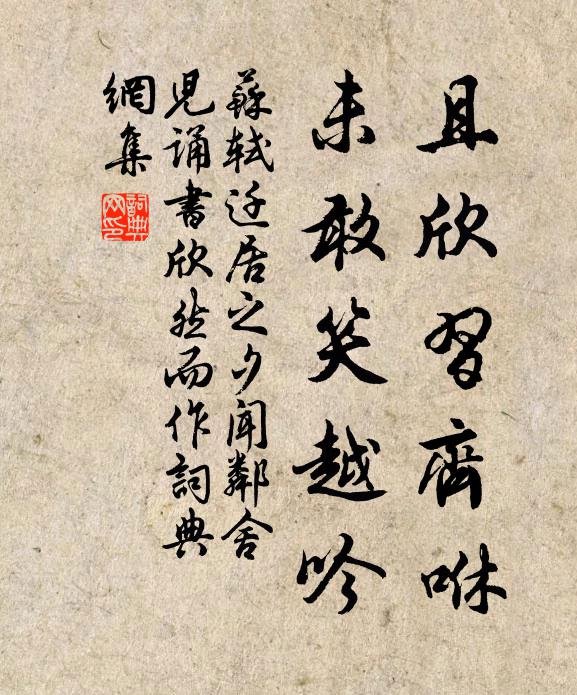 且欣習齊咻
未敢笑越吟
蘇軾迁居之夕聞鄰舍
兒誦書欣然而作詞典
網集
詞典
网印